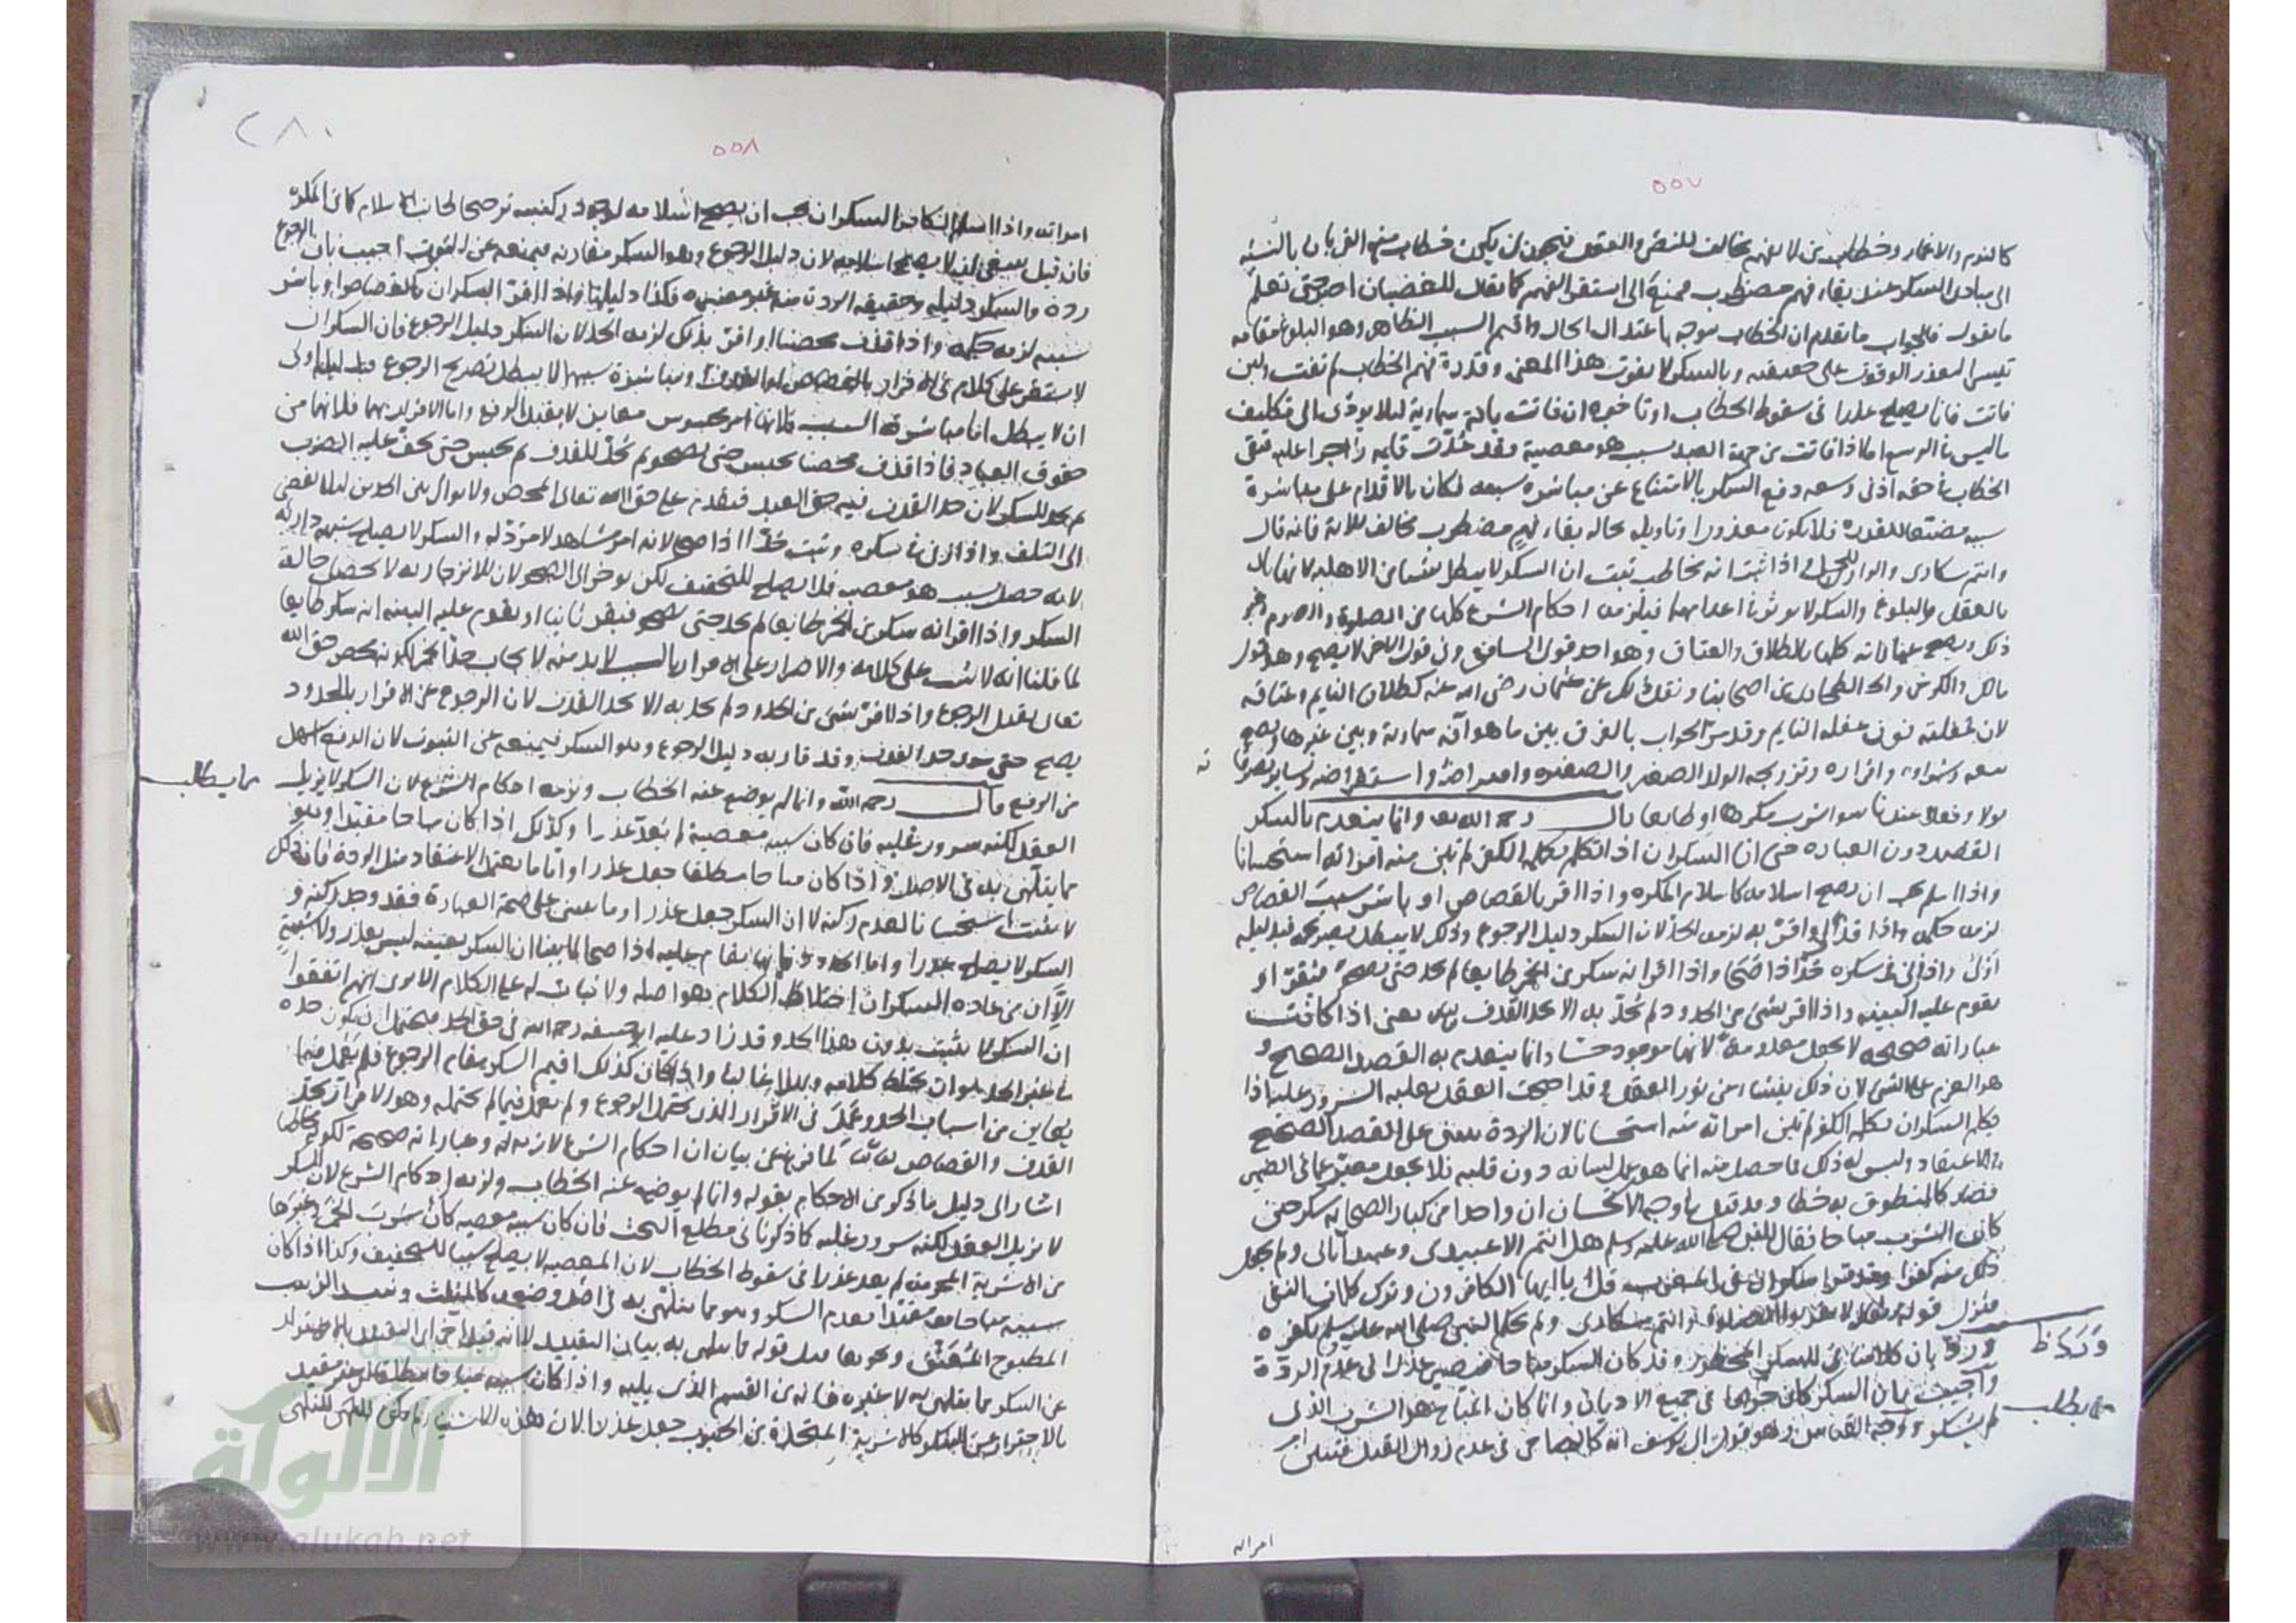 ٥٥٧
كالنوم والاغماء وخطاب من لا يفهم مخالف للنص والعقل فيجوز ان يكون خطاب منع القربان بالنسبة
الى مبادى السكر عند بقاء فهم مضطرب ممنع الى استقرار الفهم كما يقال للغضبان اصبر حتى تعلم
ما تقول فالجواب ما تقدم ان الخطاب متوجه باعتدال الحال واقيم السبب الظاهر وهو البلوغ مقامه
تيسيرا لتعذر الوقوف على حقيقته وبالسكر لا يفوت هذا المعنى وقدرة فهم الخطاب
فاتت فانما يصلح عذرا فى سقوط الخطاب او تاخره ان فاتت بافة سماوية ليلا يؤدى الى تكليف
ما ليس فى الوسع اما اذا فاتت من جهة العبد بسبب هو معصية فقد عدت قايمة زاجرا عليه فبقى
الخطاب فى حقه اذ فى وسعه دفع السكر بالامتناع عن مباشرة سببه فكان بالاقدام على مباشرة
سببه مضيعا للقدرة فلا يكون معذورا وتاويله بحالة بقاء فهم مضطرب مخالف للاية فانه قال
وانتم سكارى والواو للحال واذا ثبت انه مخاطب ثبت ان السكر لا يبطل شيئا من الاهلية لانها
بالعقل والبلوغ والسكر لا يوثر فى اعدامهما فيلزمه احكام الشرع كلها من الصلوة والصوم وغير
ذلك ويصح عباراته كلها بالطلاق والعتاق وهو احد قولى الشافعى وفى قوله الاخر لا يصح وهو قول
مالك والكرخى والطحاوى من اصحابنا ونقل ذلك عن عثمان رضى الله عنه كطلاق النايم وعتاقه
لان غفلته فوق غفلة النايم وقد مر الجواب بالفرق بين ما هو آفة سماوية وبين غيرها ويصح
بيعه وشراؤه واقراره وتزويجه الولد الصغير والصغيرة واقراضه واستقراضه وساير تصرفاته
قولا وفعلا عندنا سواء شرب مكرها او طايعا قال رحمه الله وانما ينعدم بالسكر
القصد دون العبارة حتى ان السكران اذا تكلم بكلمة الكفر لم تبن منه امراته استحسانا
واذا اسلم يجب ان يصح اسلامه كاسلام المكره واذا اقر بالقصاص او باشر سبب القصاص
لزمه حكمه واذا قذف او اقر به لزمه الحد لان السكر دليل الرجوع وذلك لا يبطل بصريحه فبدليله
اولى واذا زنى فى سكره حد اذا صحا واذا اقر انه سكر من الخمر طايعا لم يحد حتى يصحو فيقر او
يقوم عليه البينة واذا اقر بشئ من الحدود لم يحد به الا بحد القذف يعنى اذا كانت
عباراته صحيحة لا يجعل معدومة لانها موجودة حسا وانما ينعدم به القصد الصحيح و
هو العزم على الشئ لان ذلك ينشاء من نور العقل وقد احتجب العقل بغلبة السرور عليه فاذا
تكلم السكران بكلمة الكفر لم تبن امراته منه استحسانا لان الردة تبتنى على القصد الصحيح
والاعتقاد وليس له ذلك فما حصل منه انما هو عمل لسانه دون قلبه فلا يجعل معبرا عما فى الضمير
فصار كالمنطوق به خطا وقد قيل فى وجه الاستحسان ان واحدا من كبار الصحابة سكر حين
كان الشرب مباحا فقال للنبى صلى الله عليه وسلم هل انتم الا عبيدى وعبيد آبائى ولم يجعل
ذلك منه كفرا وقرأ سكران فى المغرب قل يا ايها الكافرون وترك كلمات النفى
فنزل قوله تعالى لا تقربوا الصلوة وانتم سكارى ولم يحكم النبى صلى الله عليه وسلم بكفره
ورد بان كلامنا فى السكر المحظور وقد كان السكر مباحا فيصير عذرا فى عدم الردة
واجيب بان السكر كان حراما فى جميع الاديان وانما كان المباح هو الشرب الذى
لم يسكر ووجه القياس وهو قول ابى يوسف انه كالصاحى فى عدم زوال العقل فتبين
امراته
٥٥٨
٢٨٠
امراته واذا اسلم الكافر السكران يجب ان يصح اسلامه لوجود ركنيه ترجيحا لجانب الاسلام كما فى المكره
فان قيل ينبغى ان لا يصح اسلامه لان دليل الرجوع وهو السكر مقارنه فيمنعه عن الثبوت اجيب بان الرجوع
ردة والسكر دليله وحقيقة الردة منه غير معتبرة فكذا دليلها واذا اقر السكران بالقصاص او باشر
سببه لزمه حكمه واذا قذف محصنا او اقر بذلك لزمه الحد لان السكر دليل الرجوع فان السكران
لا يستقر على كلام فى الاقرار بالقصاص او القذف ومباشرة سببهما لا يبطل بصريح الرجوع فبدليله اولى
ان لا يبطل اما مباشرة السبب فلانها امر محسوس معاين لا يقبل الرفع واما الاقرار بهما فلانهما من
حقوق العباد فاذا قذف محصنا يحبس حتى يصحو ثم يحد للقذف ثم يحبس حتى يخف عليه الضرب
ثم يحد للسكر لان حد القذف فيه حق العبد فيقدم على حق الله تعالى المحض ولا يوالى بين الحدين ليلا يفضى
الى التلف واذا زنى فى سكره وثبت حد اذا صحا لانه امر مشاهد لا مرد له والسكر لا يصلح شبهة داریة
لانه حصل بسبب هو معصية فلا يصلح للتخفيف لكن يوخر الى الصحو لان الانزجار به لا يحصل حالة
السكر واذا اقر انه سكر من الخمر طايعا لم يحد حتى يصحو فيقر ثانيا او يقوم عليه البينة انه سكر طايعا
لما قلنا انه لا يثبت على كلامه والاصرار على الاقرار بالسبب لا بد منه لايجاب حد الخمر لكونه محض حق الله
تعالى يقبل الرجوع واذا اقر بشئ من الحدود لم يحد به الا بحد القذف لان الرجوع عن الاقرار بالحدود
يصح حتى سوى حد القذف وقد قارنه دليل الرجوع وهو السكر فيمنعه عن الثبوت لان الدفع اسهل
من الرفع قال رحمه الله وانما لم يوضع عنه الخطاب ولزمه احكام الشرع لان السكر لا يزيل
العقل لكنه سرور غلبه فان كان سببه معصية لم يعد عذرا وكذلك اذا كان مباحا مقيدا وهو
مما يتلهى به فى الاصل واذا كان مباحا مطلقا جعل عذرا واما ما يعتمد الاعتقاد مثل الردة فان ذلك
لا يثبت استحسانا لعدم ركنه لا ان السكر جعل عذرا وما يبنى على صحة العبارة فقد وجد ركنه و
السكر لا يصلح عذرا واما الحدود فانها تقام عليه اذا صحا لما بينا ان السكر بعينه ليس بعذر ولا شبهة
الا ان من عادة السكران اختلاط الكلام هو اصله ولا ثبات له على الكلام الا ترى انهم اتفقوا
ان السكر لا يثبت بدون هذا الحد وقد زاد عليه ابو حنيفة رحمه الله فى حق الحد فيحتمل ان يكون حده
فى غير الحد هو ان يختلط كلامه ويهذى غالبا واذا كان كذلك اقيم السكر مقام الرجوع فلم يعمل فيما
يعاين من اسباب الحد وعمل فى الاقرار الذى يحتمل الرجوع ولم يعمل فيما لم يحتمله وهو الاقرار بحد
القذف والقصاص لما فرغ عن بيان ان احكام الشرع لازمة له وعباراته صحيحة لكونه مخاطبا
اشار الى دليل ما ذكر من الاحكام بقوله وانما لم يوضع عنه الخطاب ولزمه احكام الشرع لان السكر
لا يزيل العقل لكنه سرور غلبه كما ذكرنا فى مطلع البحث فان كان سببه معصية كان شرب الخمر وغيرها
من الاشربة المحرمة لم يعد عذرا فى سقوط الخطاب لان المعصية لا يصلح سببا للتخفيف وكذا اذا كان
سببه مباحا مقيدا بعدم السكر وهو مما يتلهى به فى اصل وضعه كالمثلث ونبيذ الزبيب
المطبوخ المعتق ونحوهما قوله مما يتلهى به بيان التقييد
عن السكر مما يتلهى به لا غيره من القسم الذى يليه واذا كان سببه مباحا مطلقا غير مقيد
بالاحتراز عن السكر كالاشربة المتخذة من الحبوب جعل عذرا لان هذه الاشياء للتلهى
مما يطالب
www.alukah.net
الألوكة
شبكة